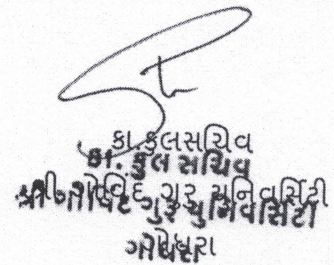 કા.કુલસચિવ
કા. કુલ સચિવ
શ્રી ગોવિંદ ગુરુ યુનિવર્સિટી
શ્રી ગોવિંદ ગુરુ યુનિવર્સિટી
ગોધરા
ગોધરા